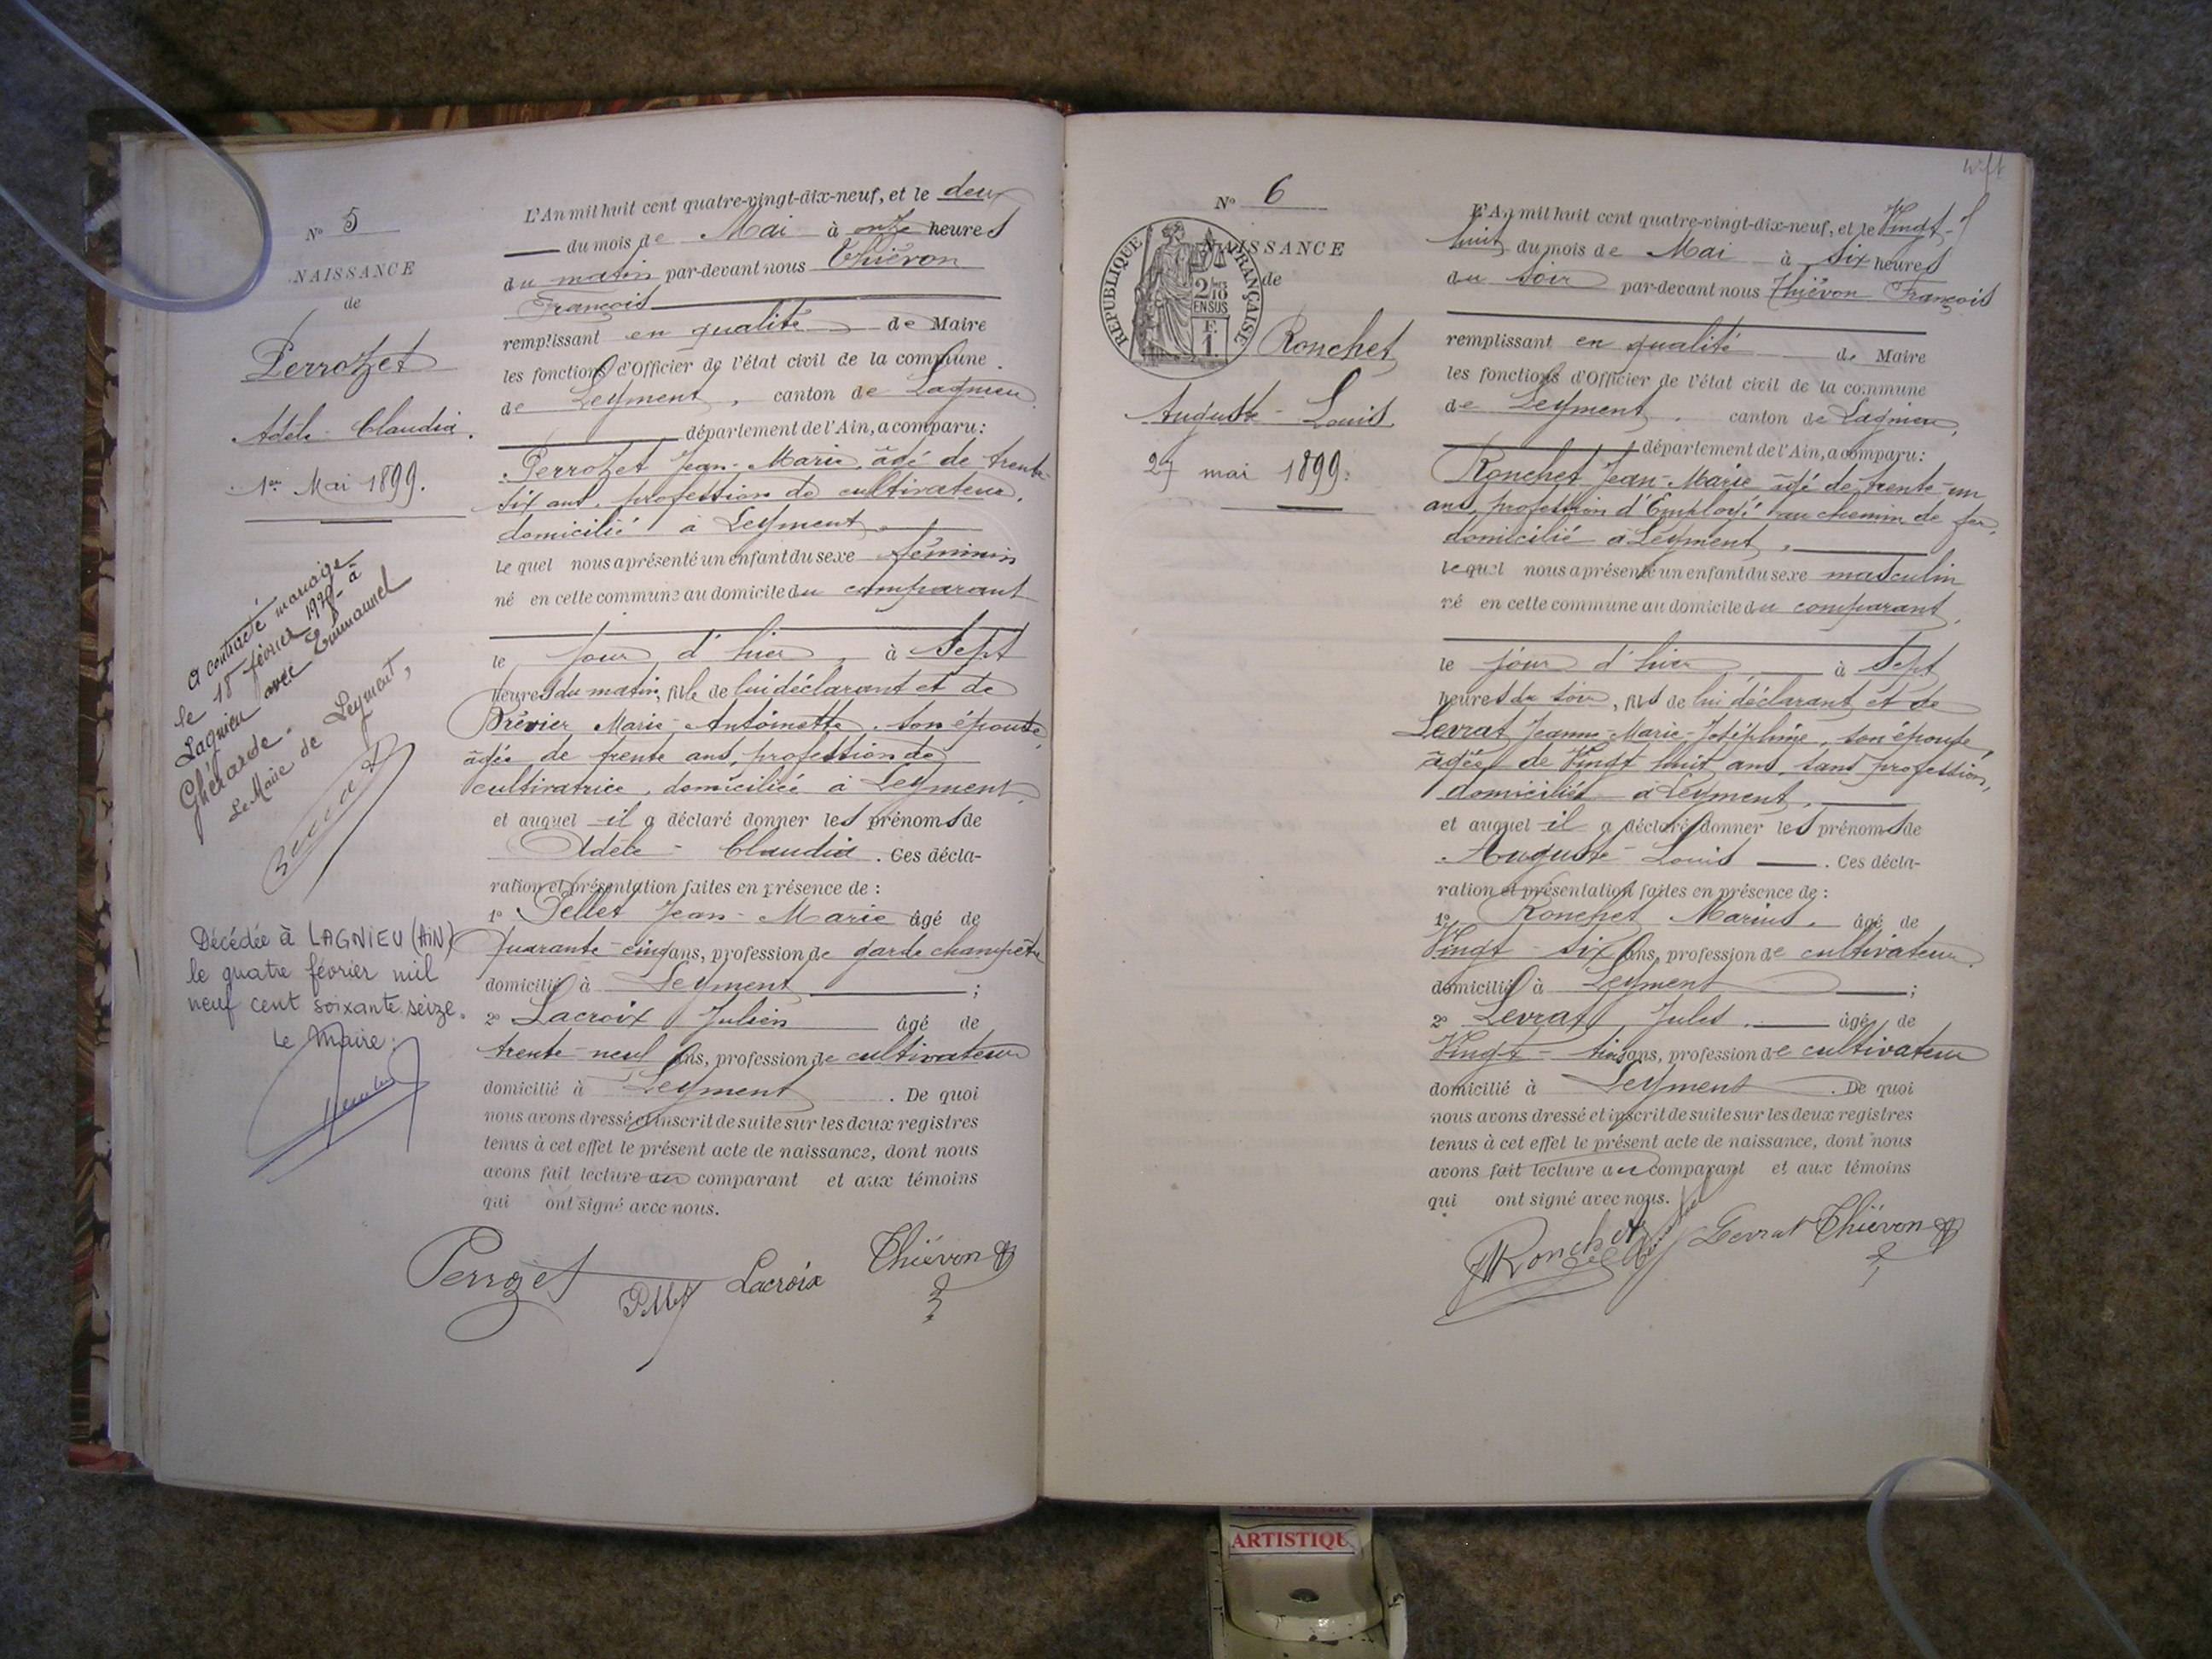 N° 5
NAISSANCE
de
Perrozet
Adèle - Claudia.
1er Mai 1899.
a contracté mariage
le 18 février
Lagnieu avec Emmanuel
Ghérarde.
Le Maire de Leyment,
Décédée à LAGNIEU (AIN)
le quatre février mil
neuf cent soixante seize.
Le Maire:
L'An mil huit cent quatre-vingt-dix-neuf, et le deux
du mois de Mai à onze heures
du matin par-devant nous Thiévon
François
remplissant en qualité de Maire
les fonctions d'Officier de l'état civil de la commune
de Leyment, canton de Lagnieu
département de l'Ain, a comparu:
Perrozet Jean-Marie, âgé de trente-
six ans, profession de cultivateur,
domicilié à Leyment,
lequel nous a présenté un enfant du sexe féminin
né en cette commune au domicile du comparant
le jour d'hier, à Sept
heures du matin, fille de lui déclarant et de
Brévier Marie-Antoinette, son épouse,
âgée de trente ans, profession de
cultivatrice, domiciliée à Leyment,
et auquel il a déclaré donner les prénoms de
Adèle - Claudia. Ces décla-
ration et présentation faites en présence de :
1° Pellet Jean-Marie âgé de
quarante-cinq ans, profession de garde champêtre
domicilié à Leyment ;
2° Lacroix Julien âgé de
trente-neuf ans, profession de cultivateur
domicilié à Leyment. De quoi
nous avons dressé et inscrit de suite sur les deux registres
tenus à cet effet le présent acte de naissance, dont nous
avons fait lecture au comparant et aux témoins
qui ont signé avec nous.
Perrozet Pellet Lacroix Thiévon
N° 6
NAISSANCE
de
RÉPUBLIQUE FRANÇAISE
2/10
EN SUS
F.
1.
Ronchet
Auguste - Louis.
27 mai 1899.
L'An mil huit cent quatre-vingt-dix-neuf, et le Vingt-
huit du mois de Mai à Six heures
du soir par-devant nous Thiévon François
remplissant en qualité de Maire
les fonctions d'Officier de l'état civil de la commune
de Leyment, canton de Lagnieu,
département de l'Ain, a comparu:
Ronchet Jean-Marie âgé de trente-un
ans, profession d'Employé au chemin de fer,
domicilié à Leyment,
lequel nous a présenté un enfant du sexe masculin
né en cette commune au domicile du comparant,
le jour d'hier, à Sept
heures du soir, fils de lui déclarant et de
Levrat Jeanne-Marie-Joséphine, son épouse,
âgée de Vingt huit ans, sans profession,
domiciliée à Leyment,
et auquel il a déclaré donner les prénoms de
Auguste - Louis. Ces décla-
ration et présentation faites en présence de :
1° Ronchet Marius, âgé de
Vingt - six ans, profession de cultivateur
domicilié à Leyment ;
2° Levrat Jules, âgé de
Vingt - ans, profession de cultivateur
domicilié à Leyment. De quoi
nous avons dressé et inscrit de suite sur les deux registres
tenus à cet effet le présent acte de naissance, dont nous
avons fait lecture au comparant et aux témoins
qui ont signé avec nous.
Ronchet Levrat Thiévon
ARTISTIQU